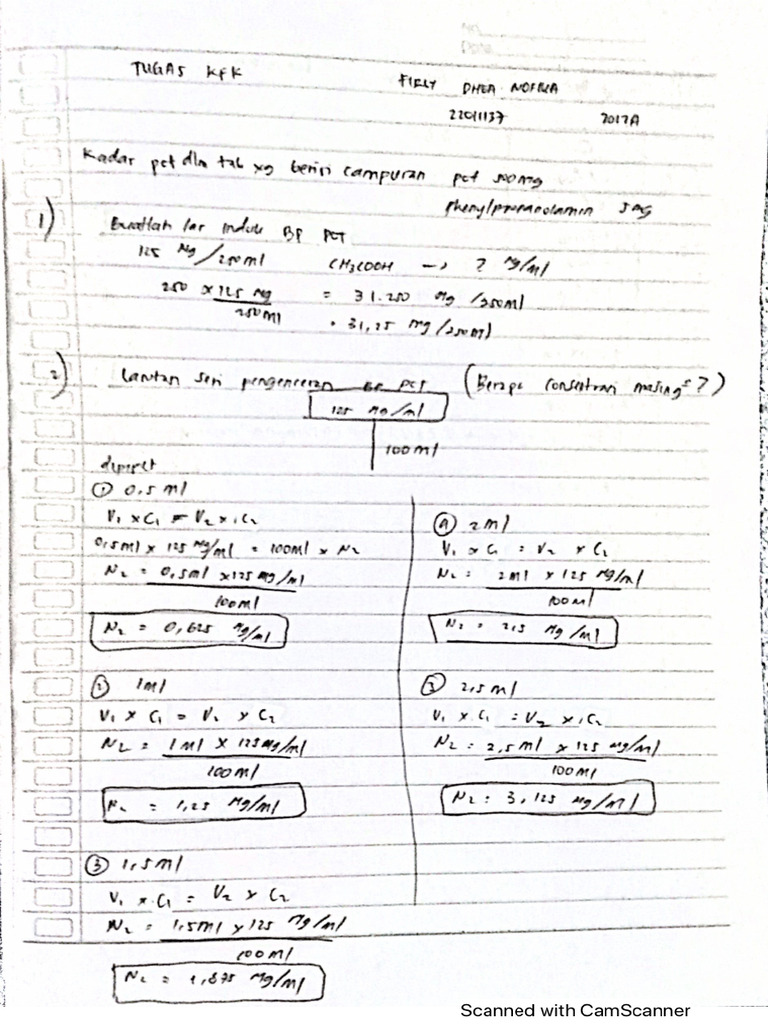 No
Date
TUGAS KFK
FIRLY DHEA NOFRIA
22011137 2017A
Kadar pct dlm tab yg berisi campuran pct 500 mg
phenylpropanolamin 5 mg
1) Buatlah lar induk BP PCT
125 Mg/250ml CH3COOH → ? Mg/ml
250 x 125 Mg / 250 ml = 31.250 Mg /250ml
= 31,25 mg/250ml
2) Larutan seri pengenceran BP PCT (Berapa consentrasi masing² ?)
125 Mg/ml
100ml
dipipet
① 0,5 ml
V1 x C1 = V2 x C2
0,5ml x 125 Mg/ml = 100ml x N2
N2 = 0,5ml x 125 mg/ml
100ml
N2 = 0,625 Mg/ml
② 1ml
V1 x C1 = V2 x C2
N2 = 1 ml x 125 mg/ml
100ml
N2 = 1,25 Mg/ml
③ 1,5ml
V1 x C1 = V2 x C2
N2 = 1,5ml x 125 Mg/ml
100ml
N2 = 1,875 Mg/ml
④ 2ml
V1 x C1 = V2 x C2
N2 = 2ml x 125 Mg/ml
100ml
N2 = 2,5 Mg/ml
2,5ml
V1 x C1 = V2 x C2
N2 = 2,5ml x 125 Mg/ml
100ml
N2 = 3,125 Mg/ml
Scanned with CamScanner